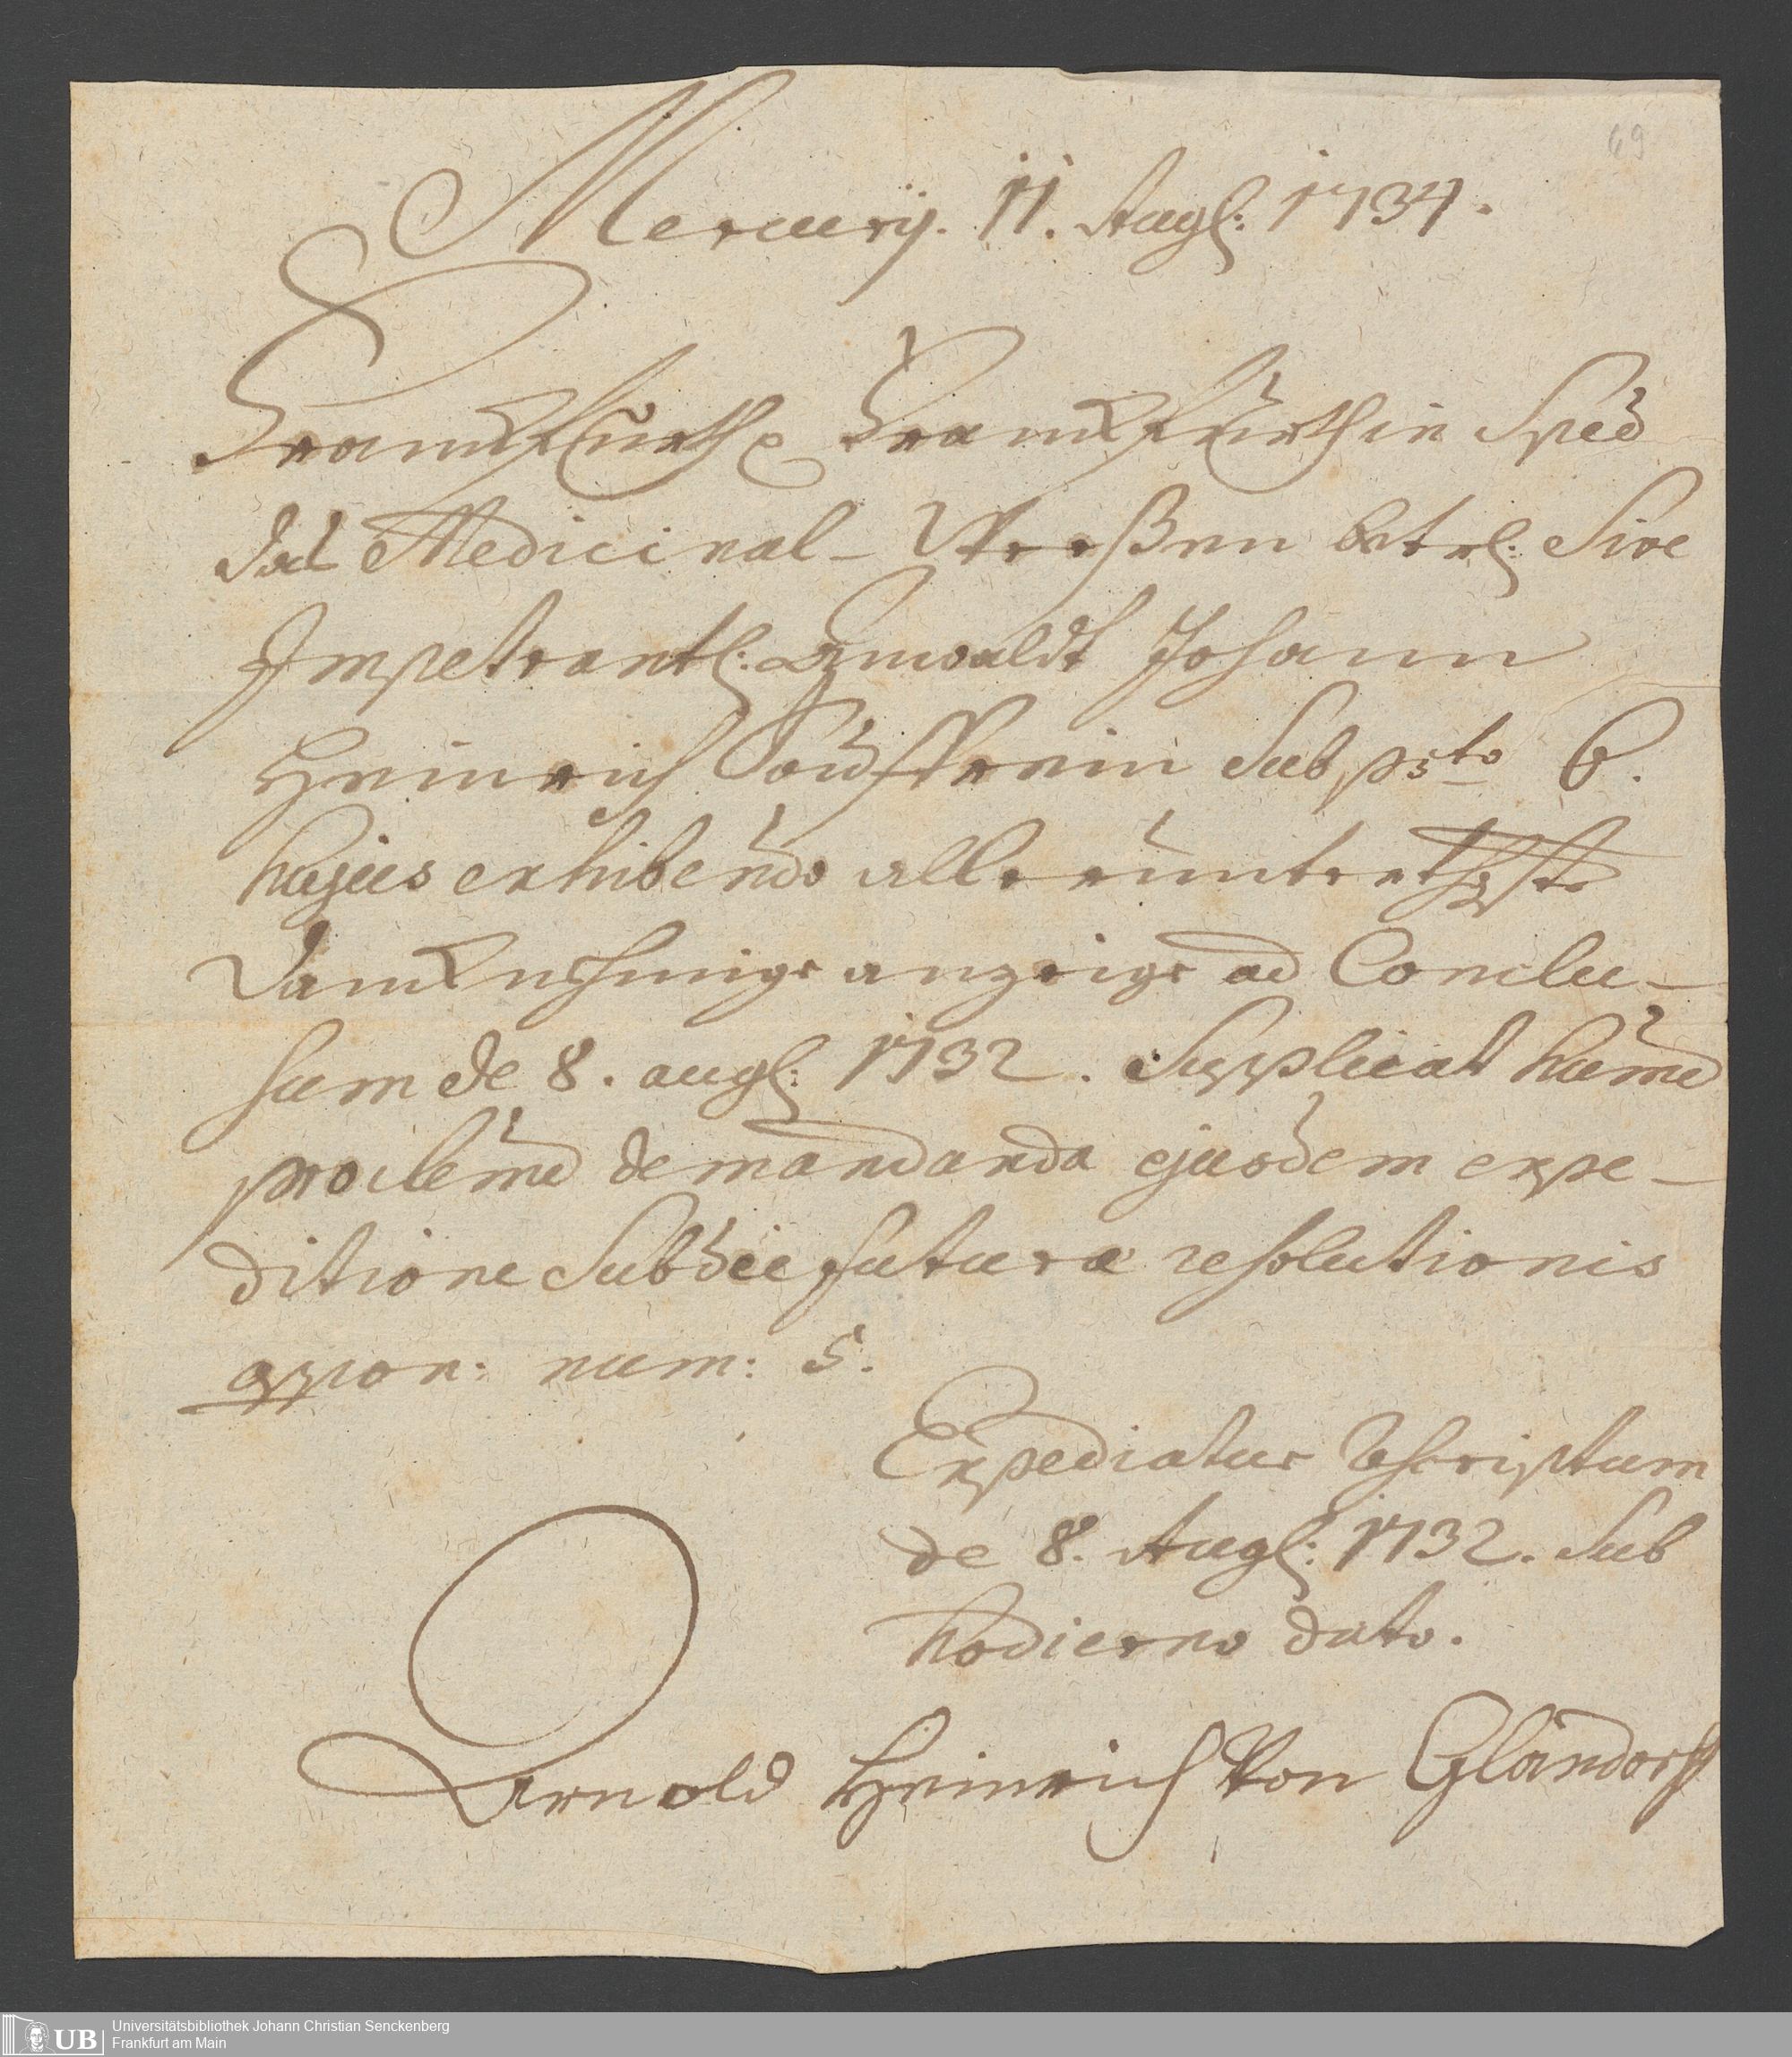 69
Mercurÿ. 11. Augl: 1734.
Franckfurth c Franckfurth in Spē
das Medicinal-Weeßen betrl: Sive
Impetrantl: Anwaldt Johann
Heinrich Sub psto 6.
hujus exhibendo allerunterthgste
ad Conclu-
sum de 8. augl: 1732. Supplicat hum̄e
pro clem̄e demandanda ejusdem expe-
ditione Sub die futuræ resolutionis
appon: num: 5.
Expediatur Rescriptum
de 8. Augl: 1732. Sub
hodierno dato.
Arnold Heinrich Von Glandorff
UB
Universitätsbibliothek Johann Christian Senckenberg
Frankfurt am Main